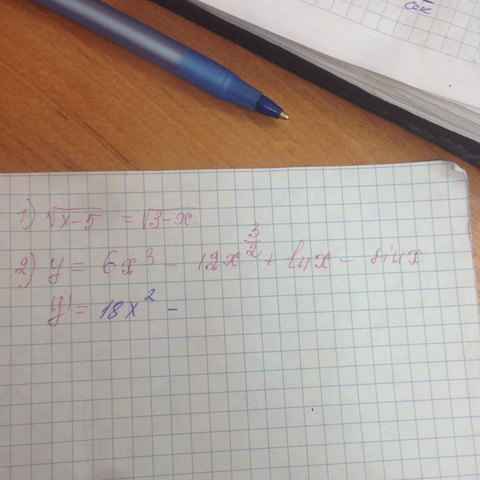 1) √x-5 = √3-x
2) y = 6x³ - 12x^(3/2) + ln x - sin x
y' = 18x² -